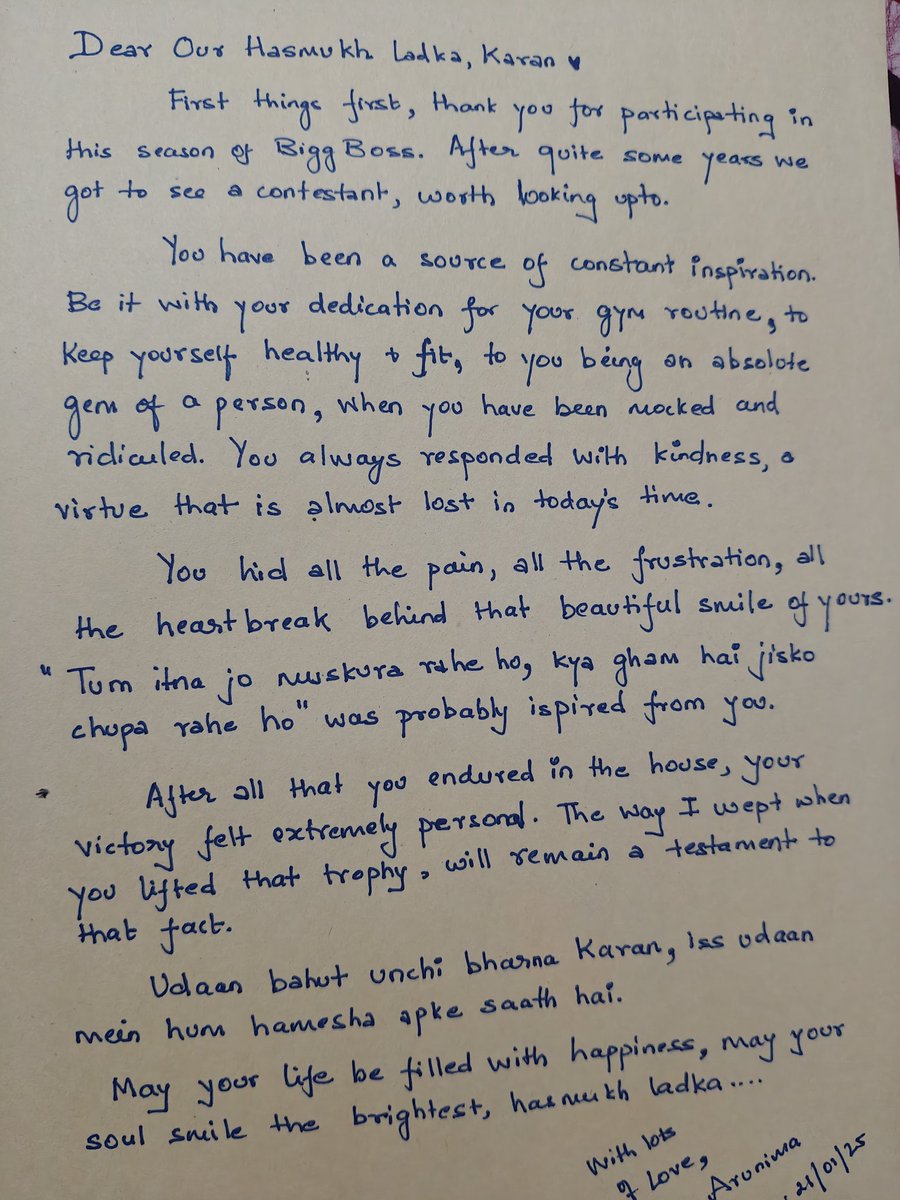 Dear Our Hasmukh Ladka, Karan ♥
First things first, thank you for participating in
this season of Bigg Boss. After quite some years we
got to see a contestant, worth looking upto.
You have been a source of constant inspiration.
Be it with your dedication for your gym routine, to
keep yourself healthy & fit, to you being an absolute
gem of a person, when you have been mocked and
ridiculed. You always responded with kindness, a
virtue that is almost lost in today's time.
You hid all the pain, all the frustration, all
the heartbreak behind that beautiful smile of yours.
"Tum itna jo muskura rahe ho, kya gham hai jisko
chupa rahe ho" was probably ispired from you.
After all that you endured in the house, your
victory felt extremely personal. The way I wept when
you lifted that trophy, will remain a testament to
that fact.
Udaan bahut unchi bharna Karan, iss udaan
mein hum hamesha apke saath hai.
May your life be filled with happiness, may your
soul smile the brightest, hasmukh ladka....
With lots
of love,
Arunima
21/01/25